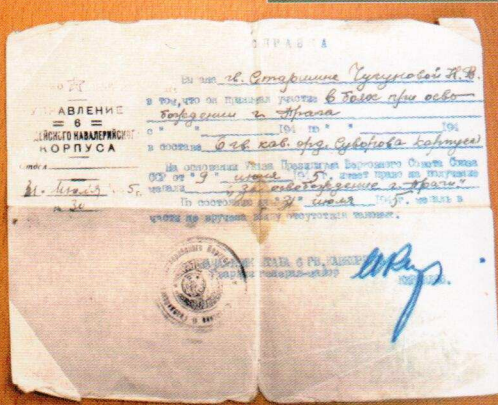 СПРАВКА
УПРАВЛЕНИЕ
6
КАВАЛЕРИЙСК
КОРПУСА
31 июля 5 г.
№ 30
Выдана гв. Старшине Чугуновой К.В.
в том, что он принимал участие в боях при осво-
бождении г. Прага
с " " 194 по " " 194
в составе 6 гв. кав. орд. Суворова корпуса
На основании Указа Президиума Верховного Совета Союза
ССР от "9" июня 5 г. имеет право на получение
медали "За освобождение г. Праги"
По состоянию на "31" июля 5 г. медаль в
части не вручена ввиду отсутствия таковых.
ШТАБА 6 ГВ.
генерал-майор